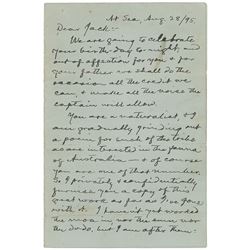 At Sea, Aug. 28/95.
Dear Jack:—
We are going to celebrate
your birth-day to-night, and
out of affection for you & for
your father we shall do the
occasion all the credit we
can, & make all the noise the
captain will allow.
You are a naturalist, & I
am gradually grinding out
a poem for such of the kids
as are interested in the fauna
of Australia — & of course
you are one of that number.
So I privately & confidentially
promise you a copy of this
great work as far as I've gone
with it. I haven't yet worked
the moa in, nor the emu nor
the dodo, but I am after them: